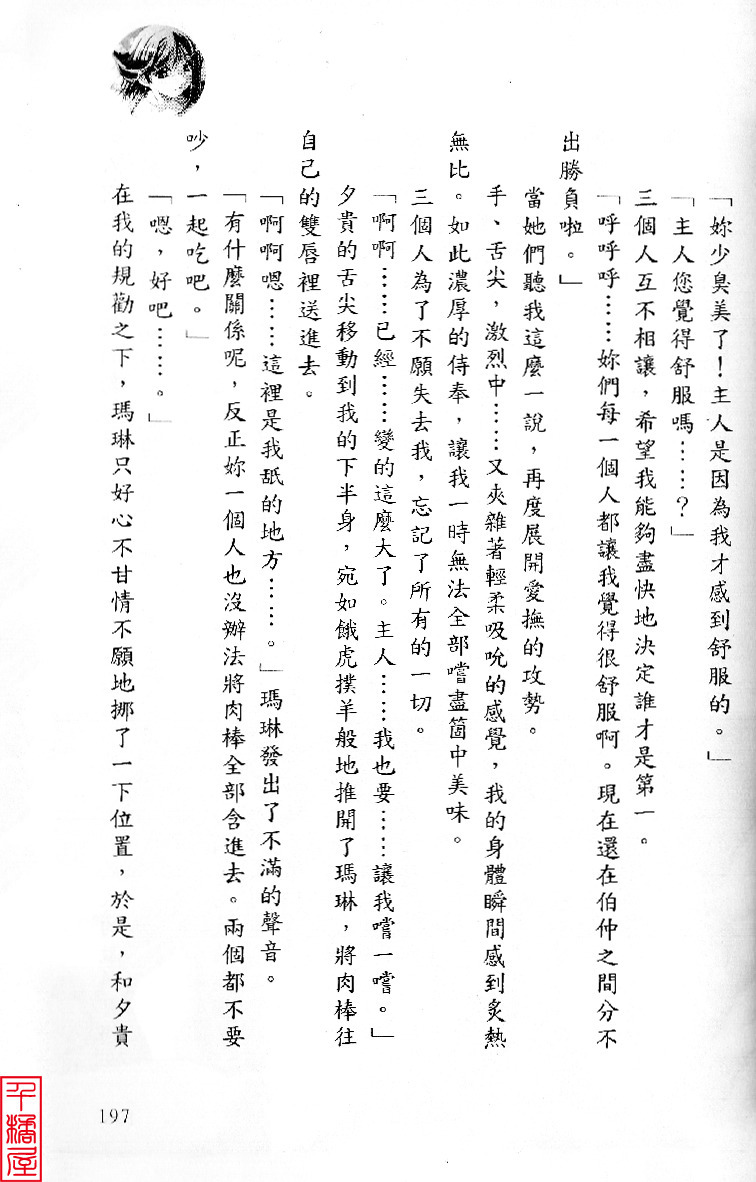 「妳少臭美了！主人是因為我才感到舒服的。」
「主人您覺得舒服嗎……？」
三個人互不相讓，希望我能夠盡快地決定誰才是第一。
「呼呼呼……妳們每一個人都讓我覺得很舒服啊。現在還在伯仲之間分不
出勝負啦。」
當她們聽我這麼一說，再度展開愛撫的攻勢。
手、舌尖，激烈中……又夾雜著輕柔吸吮的感覺，我的身體瞬間感到炙熱
無比。如此濃厚的侍奉，讓我一時無法全部嚐盡箇中美味。
三個人為了不願失去我，忘記了所有的一切。
「啊啊……已經……變的這麼大了。主人……我也要……讓我嚐一嚐。」
夕貴的舌尖移動到我的下半身，宛如餓虎撲羊般地推開了瑪琳，將肉棒往
自己的雙唇裡送進去。
「啊啊嗯……這裡是我舐的地方……。」瑪琳發出了不滿的聲音。
「有什麼關係呢，反正妳一個人也沒辦法將肉棒全部含進去。兩個都不要
吵，一起吃吧。」
「嗯，好吧……。」
在我的規勸之下，瑪琳只好心不甘情不願地挪了一下位置，於是，和夕貴
197
千橘屋